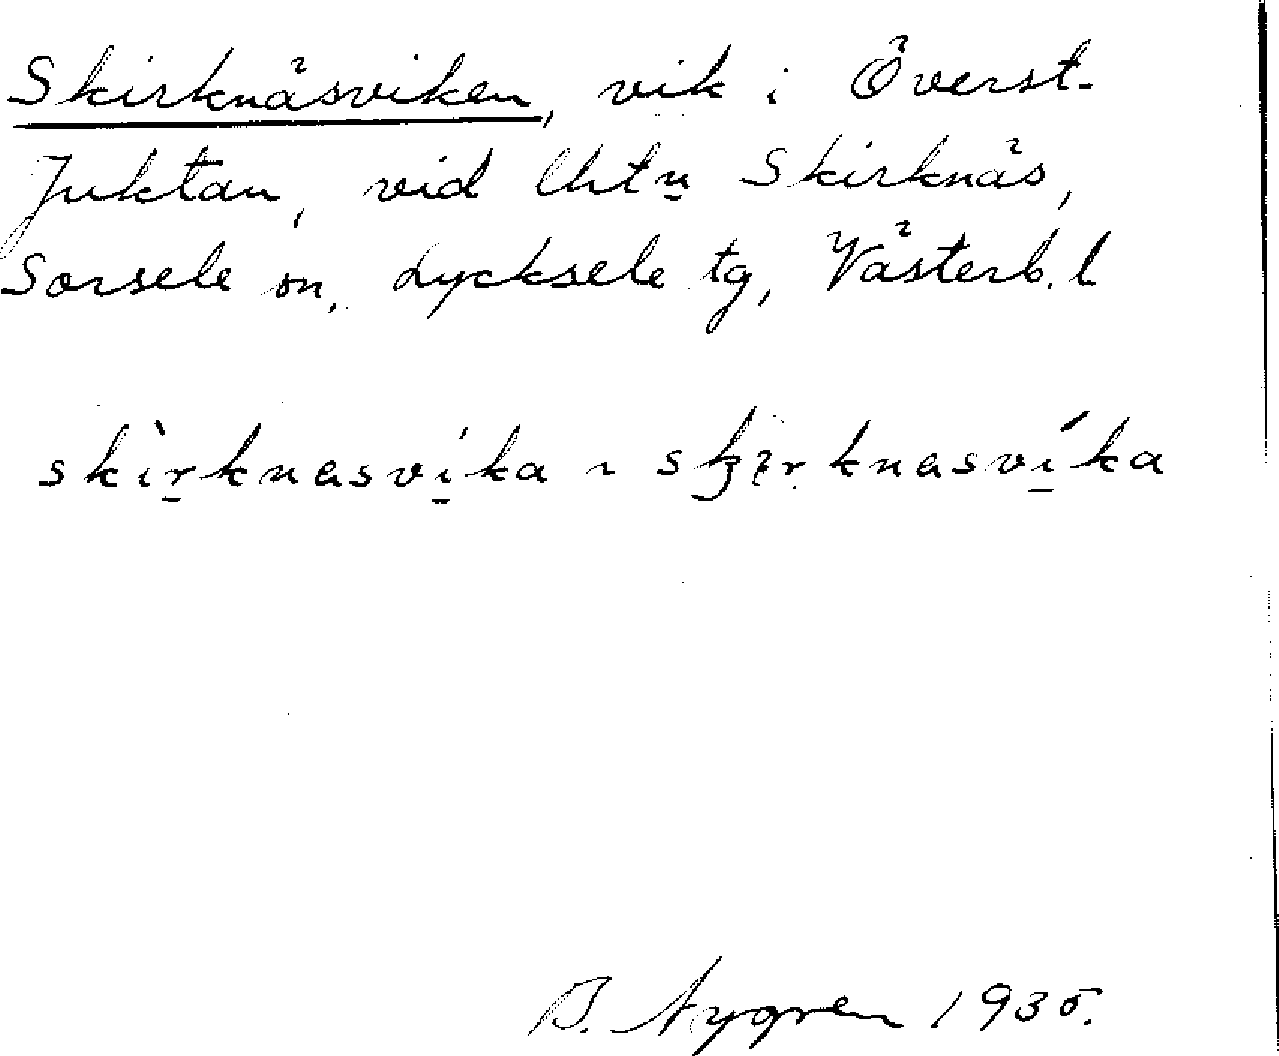 Skirknäsviken, vik i Överst-
Juktan, vid Skirknäs,
Sorsele sn, Lycksele tg, Västerb. l
skìrknasvika ~
B. Nygren 1935.